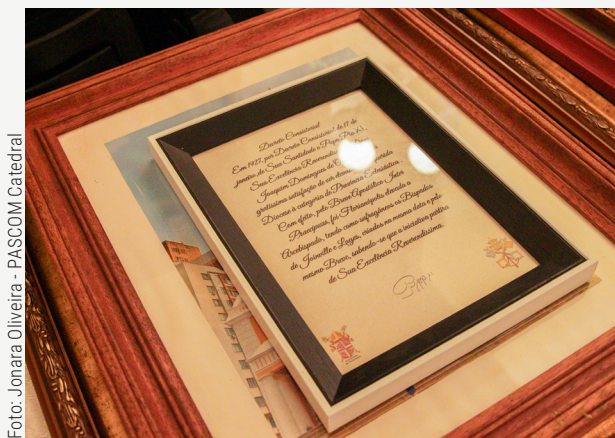 Foto: Jonara Oliveira - PASCOM Catedral
Decreto Consistorial
Em 1927, por Decreto Consistorial de 17 de
janeiro de Sua Santidade o Papa Pio XI,
Sua Excelência Reverendíssima
Joaquim Domingues de
gratíssima satisfação de ver
Diocese à categoria de Província Eclesiástica.
Com efeito, pelo Breve Apostólico Inter
Praecipuas, foi Florianópolis elevada a
Arcebispado, tendo como sufragâneos os Bispados
de Joinville e Lages, criados na mesma data e pelo
mesmo Breve, sabendo-se que a iniciativa partira
de Sua Excelência Reverendíssima.